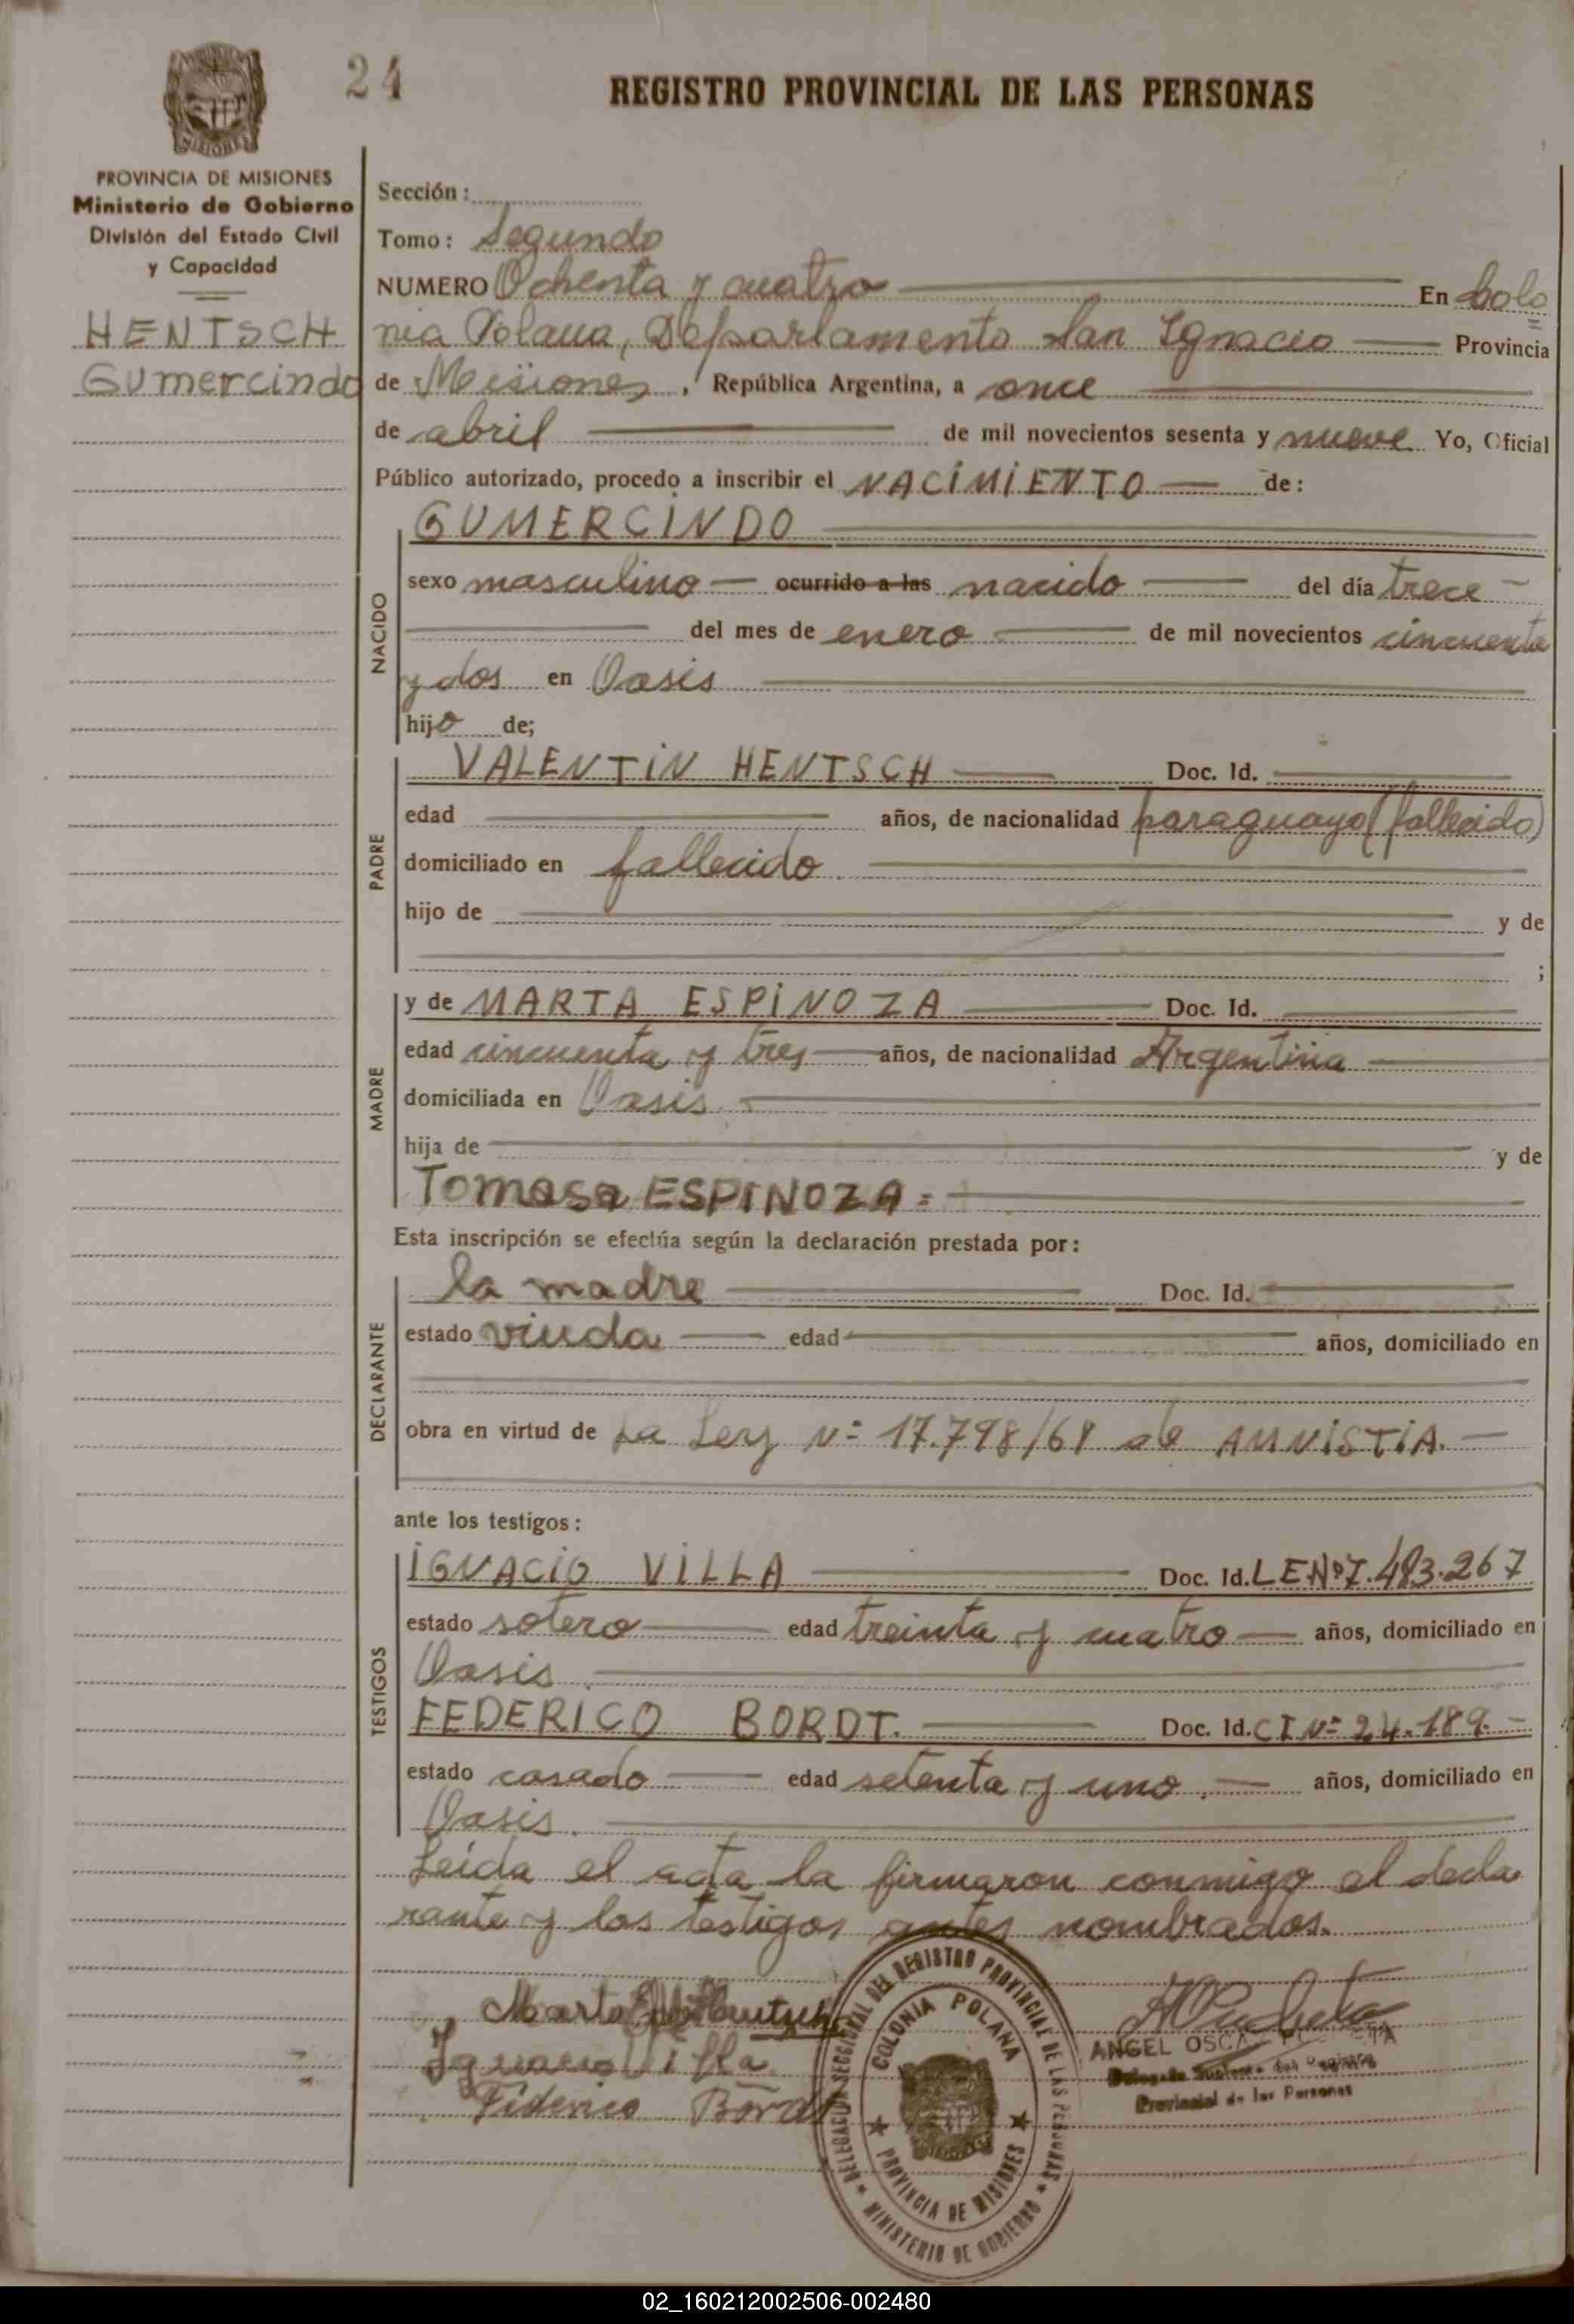 24
REGISTRO PROVINCIAL DE LAS PERSONAS
MISIONES
PROVINCIA DE MISIONES
Ministerio de Gobierno
División del Estado Civil
y Capacidad
HENTSCH
Gumercindo
Sección:
Tomo: Segundo
NUMERO Ochenta y cuatro En Colo
nia Polana, Departamento San Ignacio Provincia
de Misiones, República Argentina, a once
de abril de mil novecientos sesenta y nueve Yo, Oficial
Público autorizado, procedo a inscribir el NACIMIENTO de:
NACIDO
GUMERCINDO
sexo masculino ocurrido a las nacido del día trece
del mes de enero de mil novecientos cincuenta
y dos en Oasis
hijo de;
PADRE
VALENTIN HENTSCH Doc. Id.
edad años, de nacionalidad paraguayo (fallecido)
domiciliado en fallecido.
hijo de y de
;
MADRE
y de MARTA ESPINOZA Doc. Id.
edad cincuenta y tres años, de nacionalidad Argentina
domiciliada en Oasis.
hija de y de
Tomasa ESPINOZA=
Esta inscripción se efectúa según la declaración prestada por:
DECLARANTE
la madre Doc. Id.
estado viuda edad años, domiciliado en
obra en virtud de La Ley Nº 17.798/68 de AMNISTIA.
ante los testigos:
TESTIGOS
IGNACIO VILLA Doc. Id. LENº7.483.267
estado sotero edad treinta y cuatro años, domiciliado en
Oasis.
FEDERICO BORDT. Doc. Id. CI Nº 24.189.
estado casado edad setenta y uno. años, domiciliado en
Oasis.
Leida el acta la firmaron conmigo el decla
rante y los testigos antes nombrados.
Marta
Ignacio Villa
Fiderico Bordt
DELEGACION SECCIONAL DEL REGISTRO PROVINCIAL DE LAS PERSONAS
MINISTERIO DE GOBIERNO
COLONIA POLANA
PROVINCIA DE MISIONES
ANGEL OSCA
Delegado Suplente del Registro
Provincial de las Personas
02_160212002506-002480